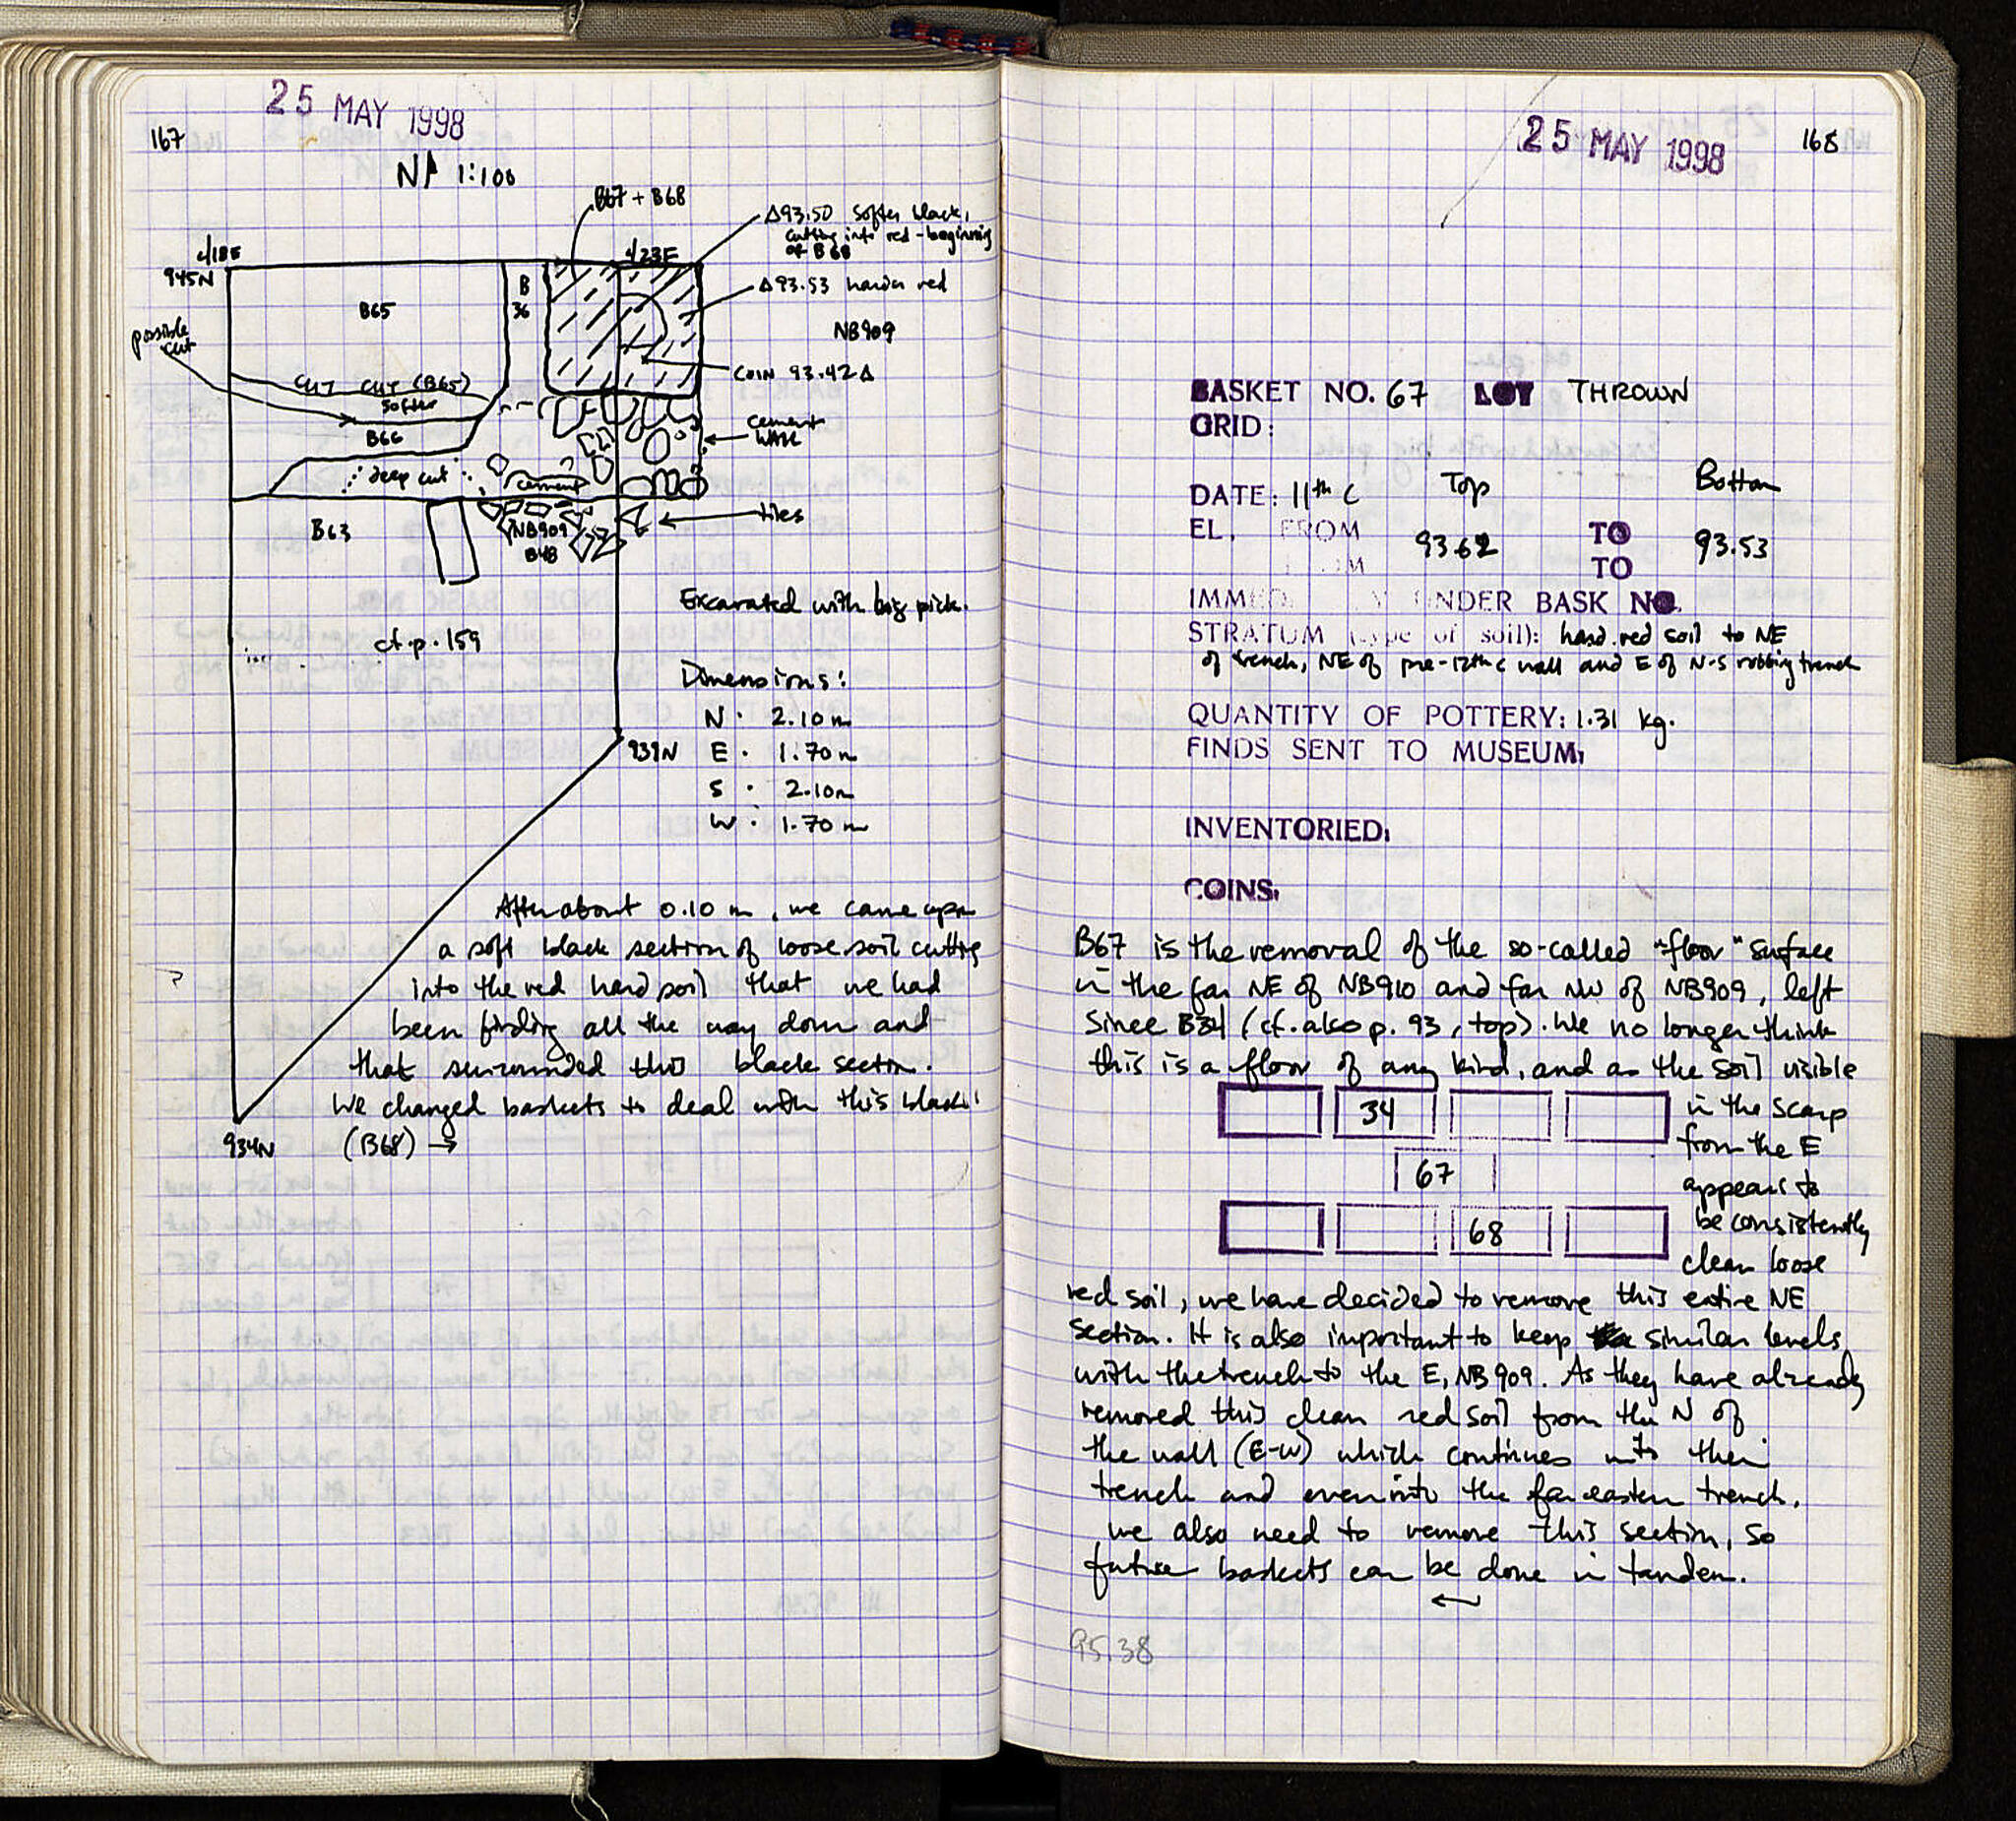 25 MAY 1998
167
N 1:100
B67 + B68
Δ93.50 softer black,
cutting into red - beginning
of B68
/18E
/23E
945N
B65
B
36
Δ93.53 harder red
NB909
possible
cut
COIN 93.42Δ
CUT CUT (B65)
softer
B66
cement
wall
deep cut
cement
tiles
B63
NB909
B48
Excavated with big pick.
cf. p. 159
Dimensions:
N · 2.10 m
939N
E · 1.70 m
S · 2.10m
W · 1.70 m
After about 0.10 m, we came upon
a soft black section of loose soil cutting
into the red hard soil that we had
been finding all the way down and
that surrounded this black section.
We changed baskets to deal with this black!
934N
(B68) →
25 MAY 1998
168
BASKET NO. 67 LOT THROWN
GRID:
DATE: 11th C Top Bottom
EL. FROM 93.62 TO 93.53
TO
UNDER BASK NO.
STRATUM (type of soil): hard red soil to NE
of trench, NE of pre-12th c wall and E of N-S robbing trench
QUANTITY OF POTTERY: 1.31 kg.
FINDS SENT TO MUSEUM:
INVENTORIED:
COINS:
B67 is the removal of the so-called "floor" surface
in the far NE of NB910 and far NW of NB909, left
since B34 (cf. also p. 93, top). We no longer think
this is a floor of any kind, and as the soil visible
34
in the scarp
from the E
67
appears to
68
be consistently
clean loose
red soil, we have decided to remove this entire NE
section. It is also important to keep similar levels
with the trench to the E, NB909. As they have already
removed this clean red soil from the N of
the wall (E-W) which continues into their
trench and even into the far eastern trench,
we also need to remove this section, so
future baskets can be done in tandem.
←
95.38